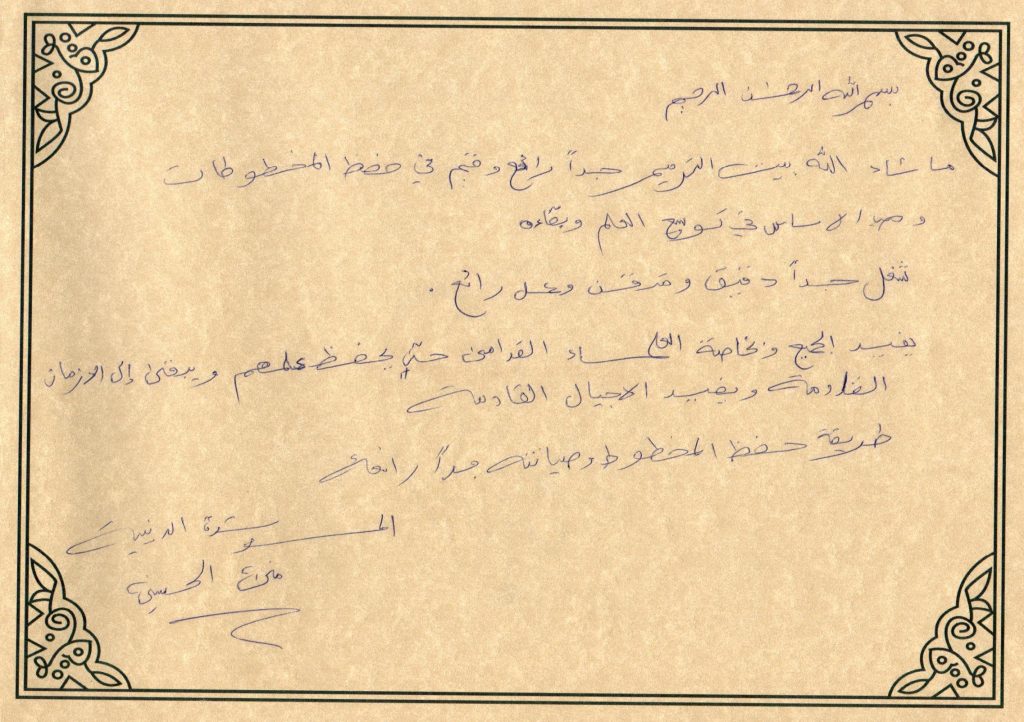 بسم الله الرحمن الرحيم
ما شاء الله بيت الترميم جداً رائع وقيم في حفظ المخطوطات
وهو الاساس في توسيع العلم وبقاءه
شغل جداً دقيق ومتقن وعمل رائع .
يفيد الجميع وبخاصة العلماء القدامى حتى يحفظ علمهم ويبقى إلى الازمان
القادمة ويفيد الاجيال القادمة
طريقة حفظ المخطوط وصيانته جداً رائعة
المرشدة الدينية
منى الحسيني